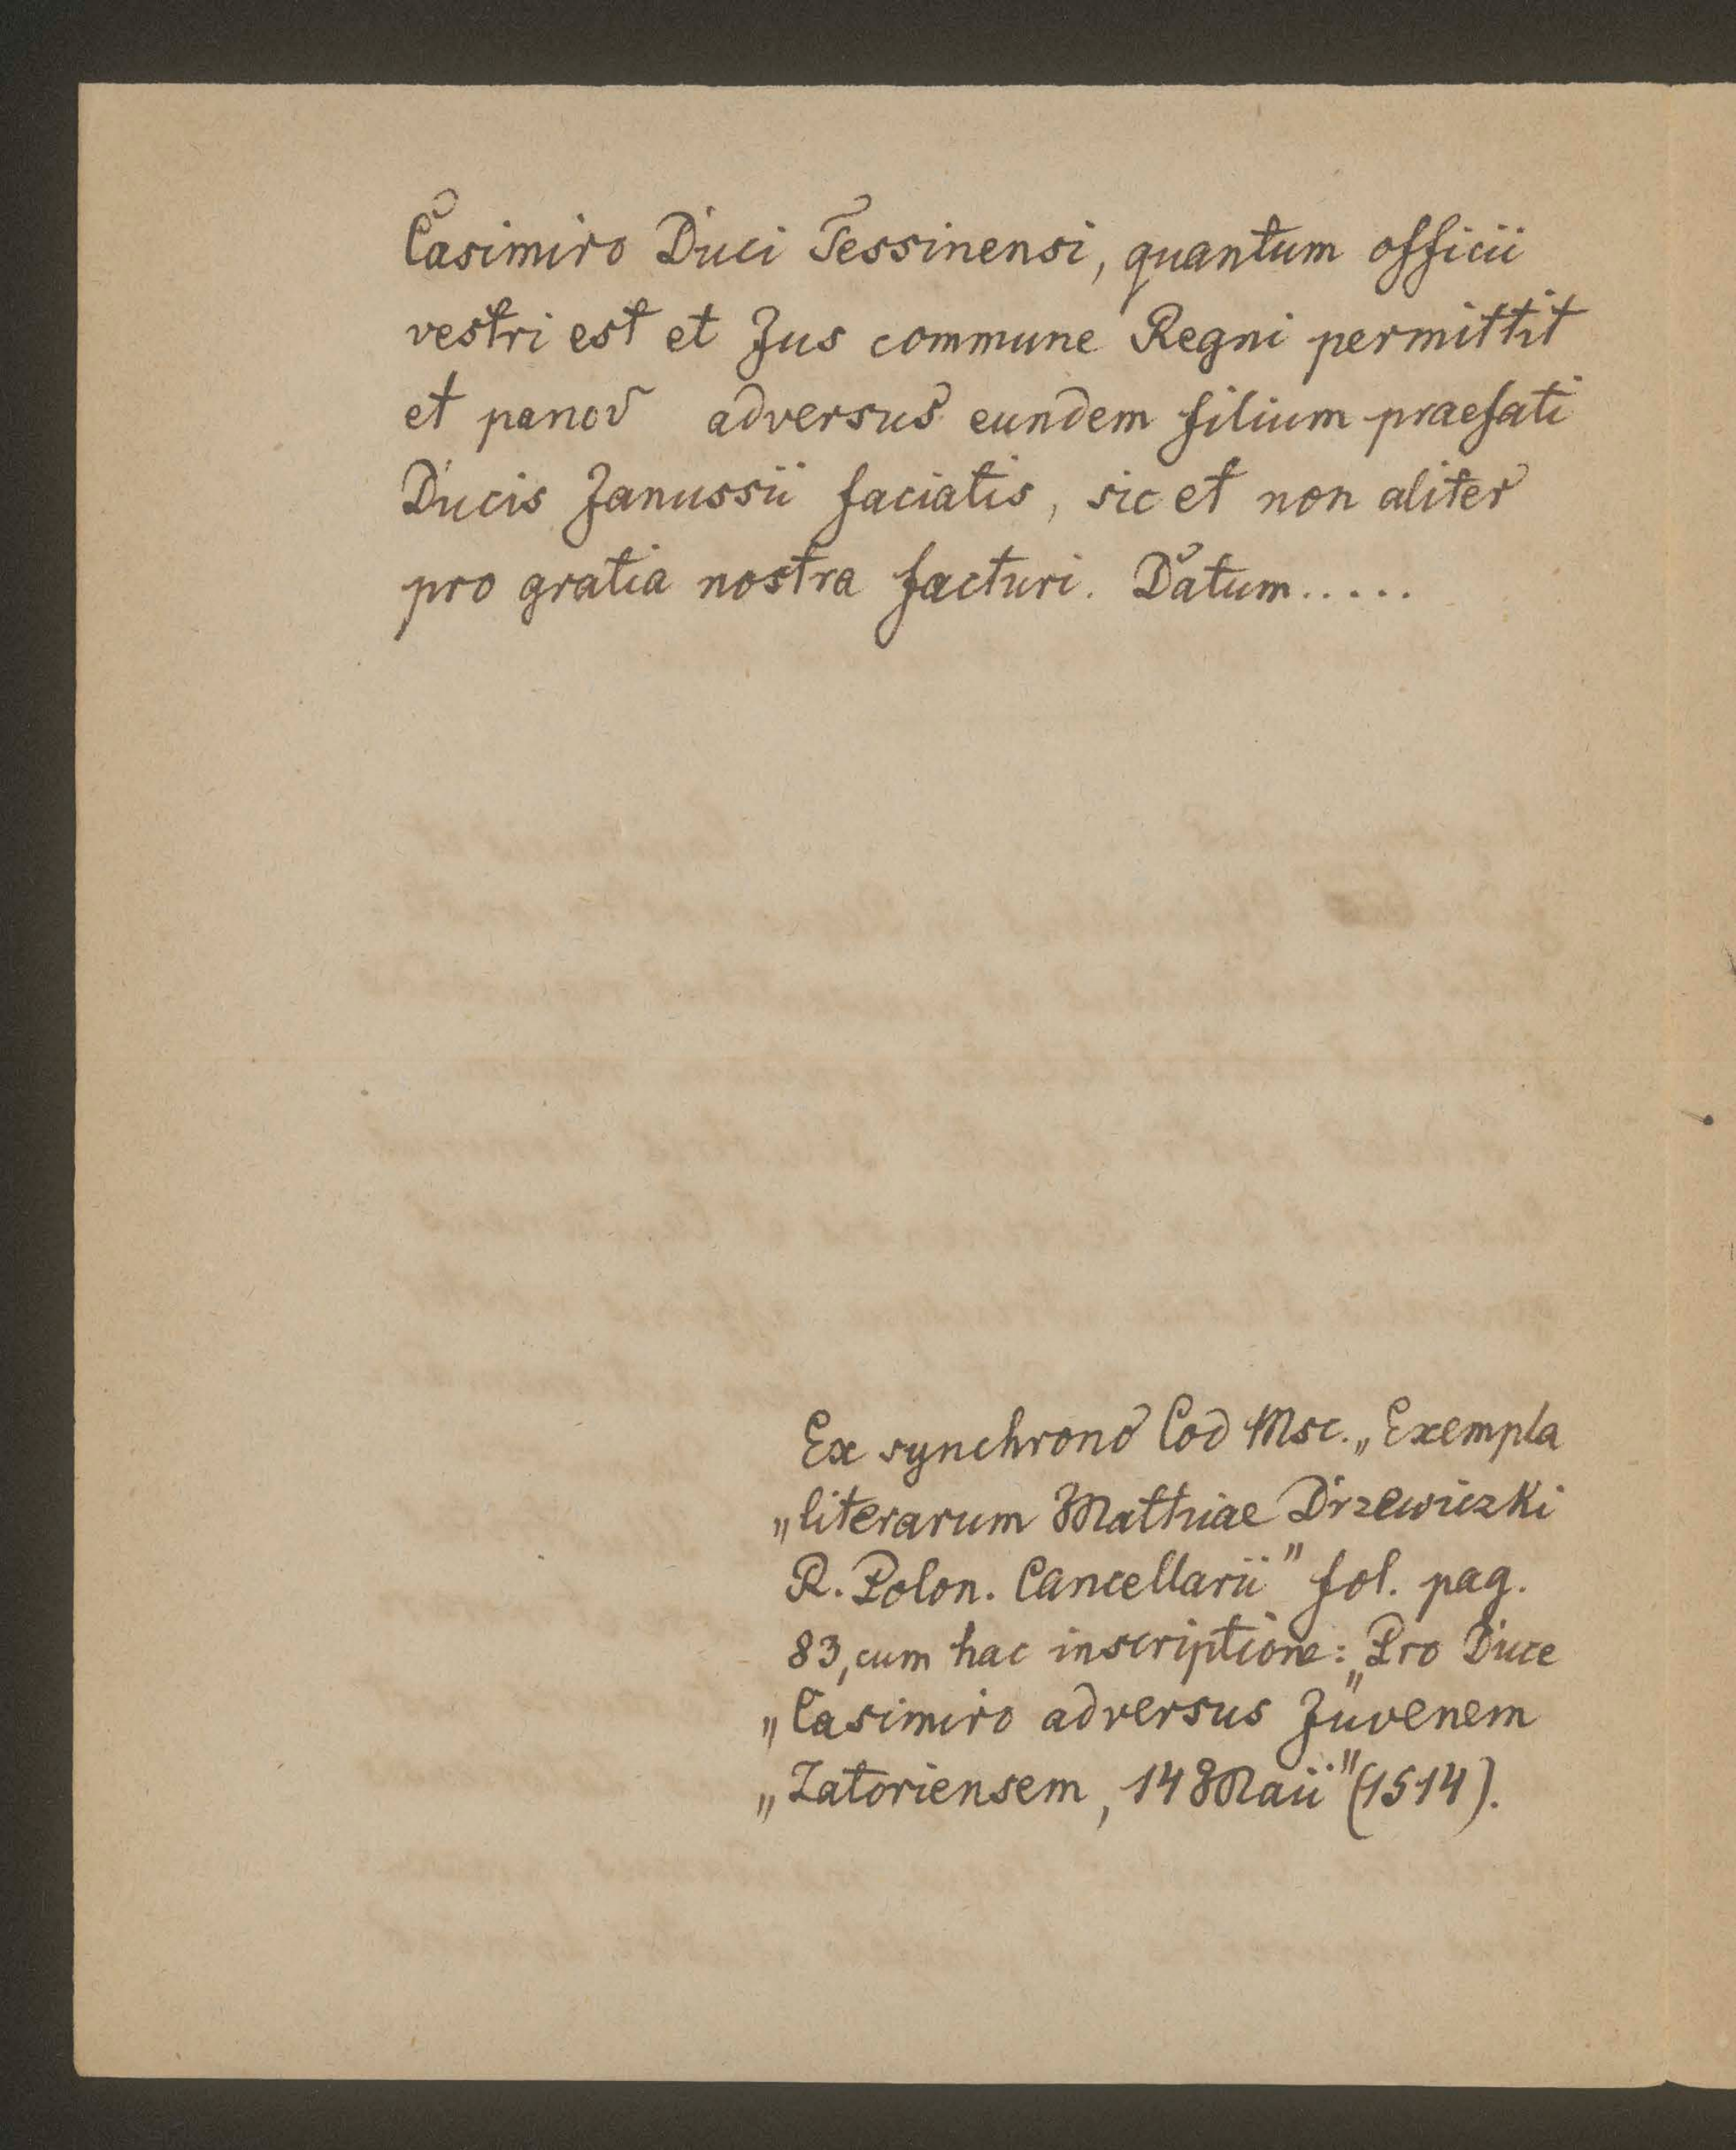 Casimiro Duci Tessinensi, quantum officii
vestri est et Jus commune Regni permittit
et panov adversus eundem filium praefati
Ducis Janussii faciatis, sic et non aliter
pro gratia nostra facturi. Datum.....
Ex synchrono Cod Msc. „Exempla
„literarum Mathiae Drzewiczki
R. Polon. Cancellarii" fol. pag.
83, cum hac inscriptione: „Pro Duce
„Casimiro adversus Juvenem
„Zatoriensem, 14 Maii" (1514).